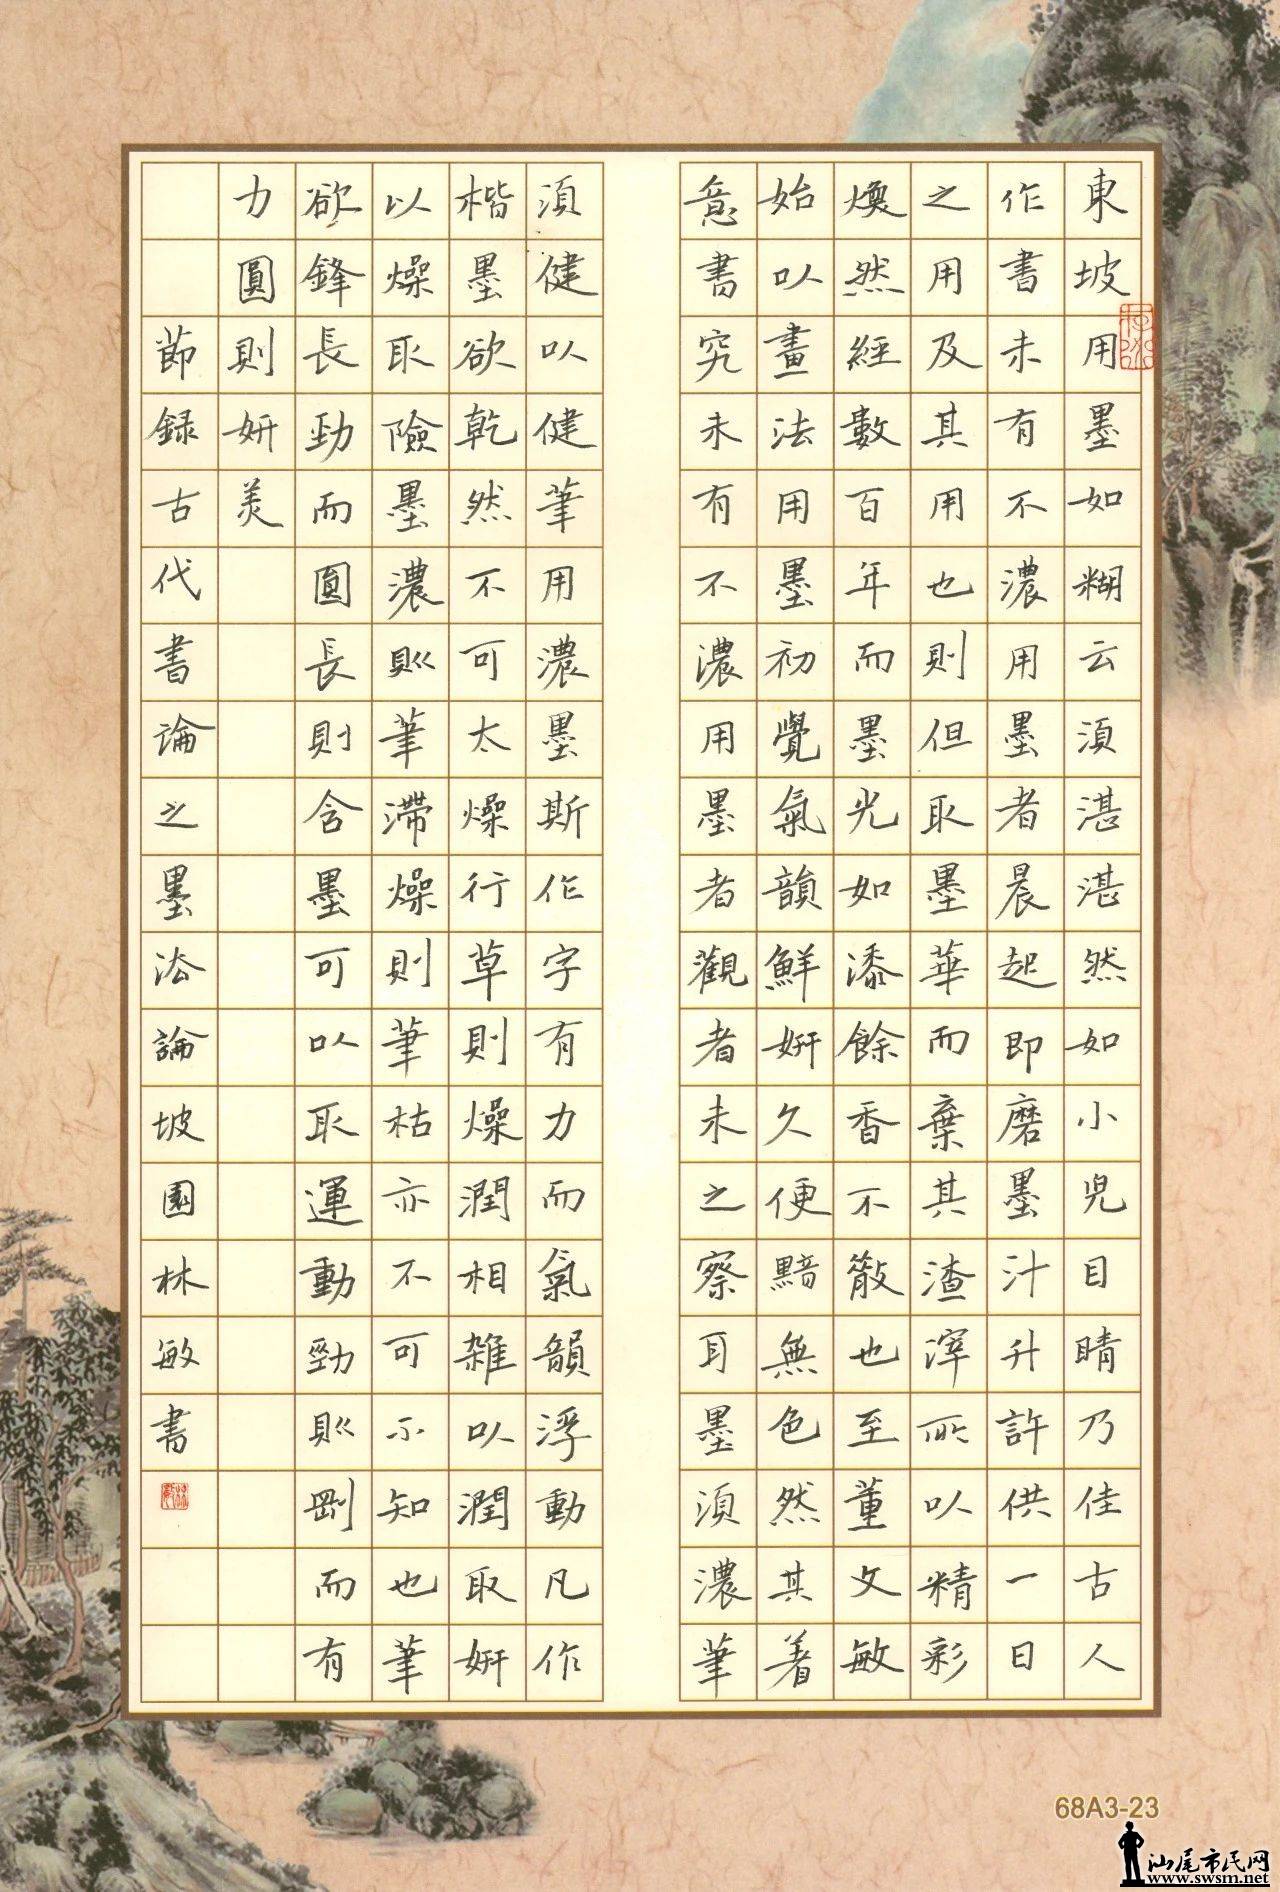 東坡用墨如糊云須湛湛然如小兒目睛乃佳古人
作書未有不濃用墨者晨起即磨墨汁升許供一日
之用及其用也則但取墨華而棄其渣滓所以精彩
煥然經數百年而墨光如漆餘香不散也至董文敏
始以畫法用墨初覺氣韻鮮妍久便黯無色然其着
意書究未有不濃用墨者觀者未之察耳墨須濃筆
須健以健筆用濃墨斯作字有力而氣韻浮動凡作
楷墨欲乾然不可太燥行草則燥潤相雜以潤取妍
以燥取險墨濃則筆滯燥則筆枯亦不可不知也筆
欲鋒長勁而圓長則含墨可以取運動勁則剛而有
力圓則妍美
節録古代書論之墨法論坡園林敏書
68A3-23
汕尾市民网
www.swsm.net